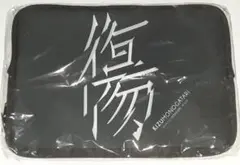 傷
KIZUMONOGATARI